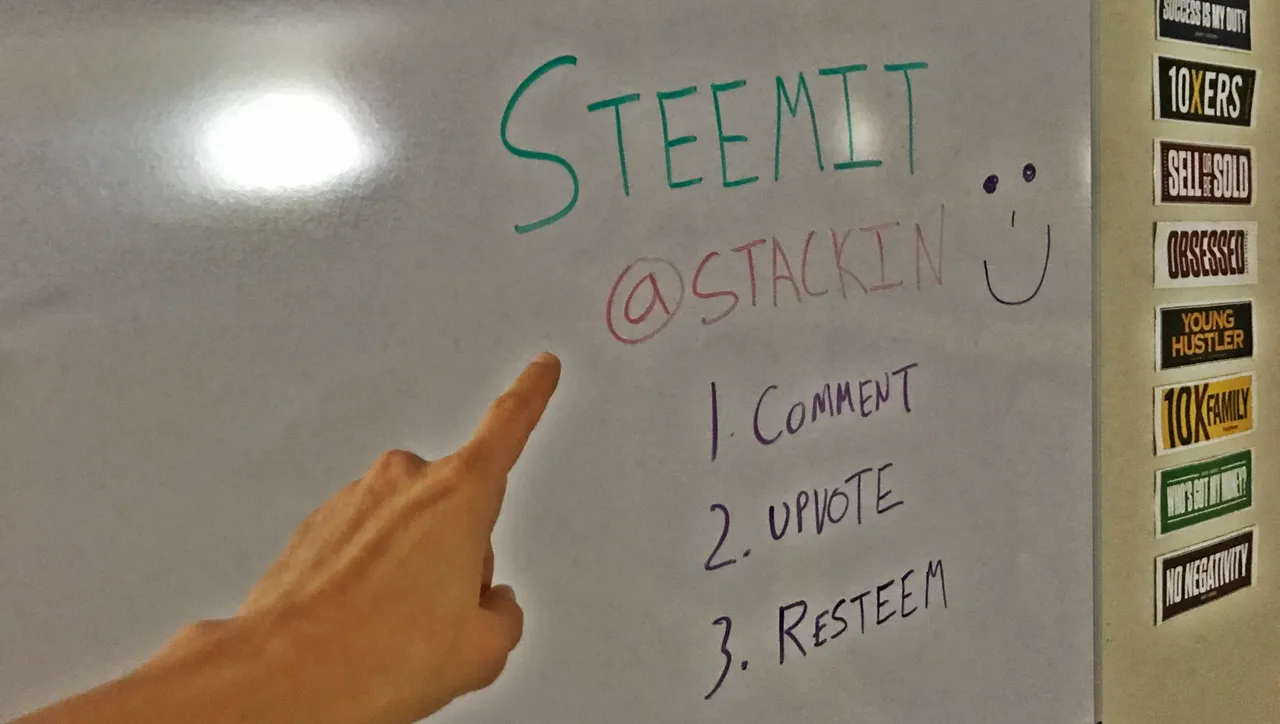 STEEMIT
@STACKIN
1. COMMENT
2. UPVOTE
3. RESTEEM
SUCCESS IS MY DUTY
10XERS
SELL OR BE SOLD
OBSESSED
YOUNG
HUSTLER
10X FAMILY
WHO'S GOT MY MONEY?
NO NEGATIVITY